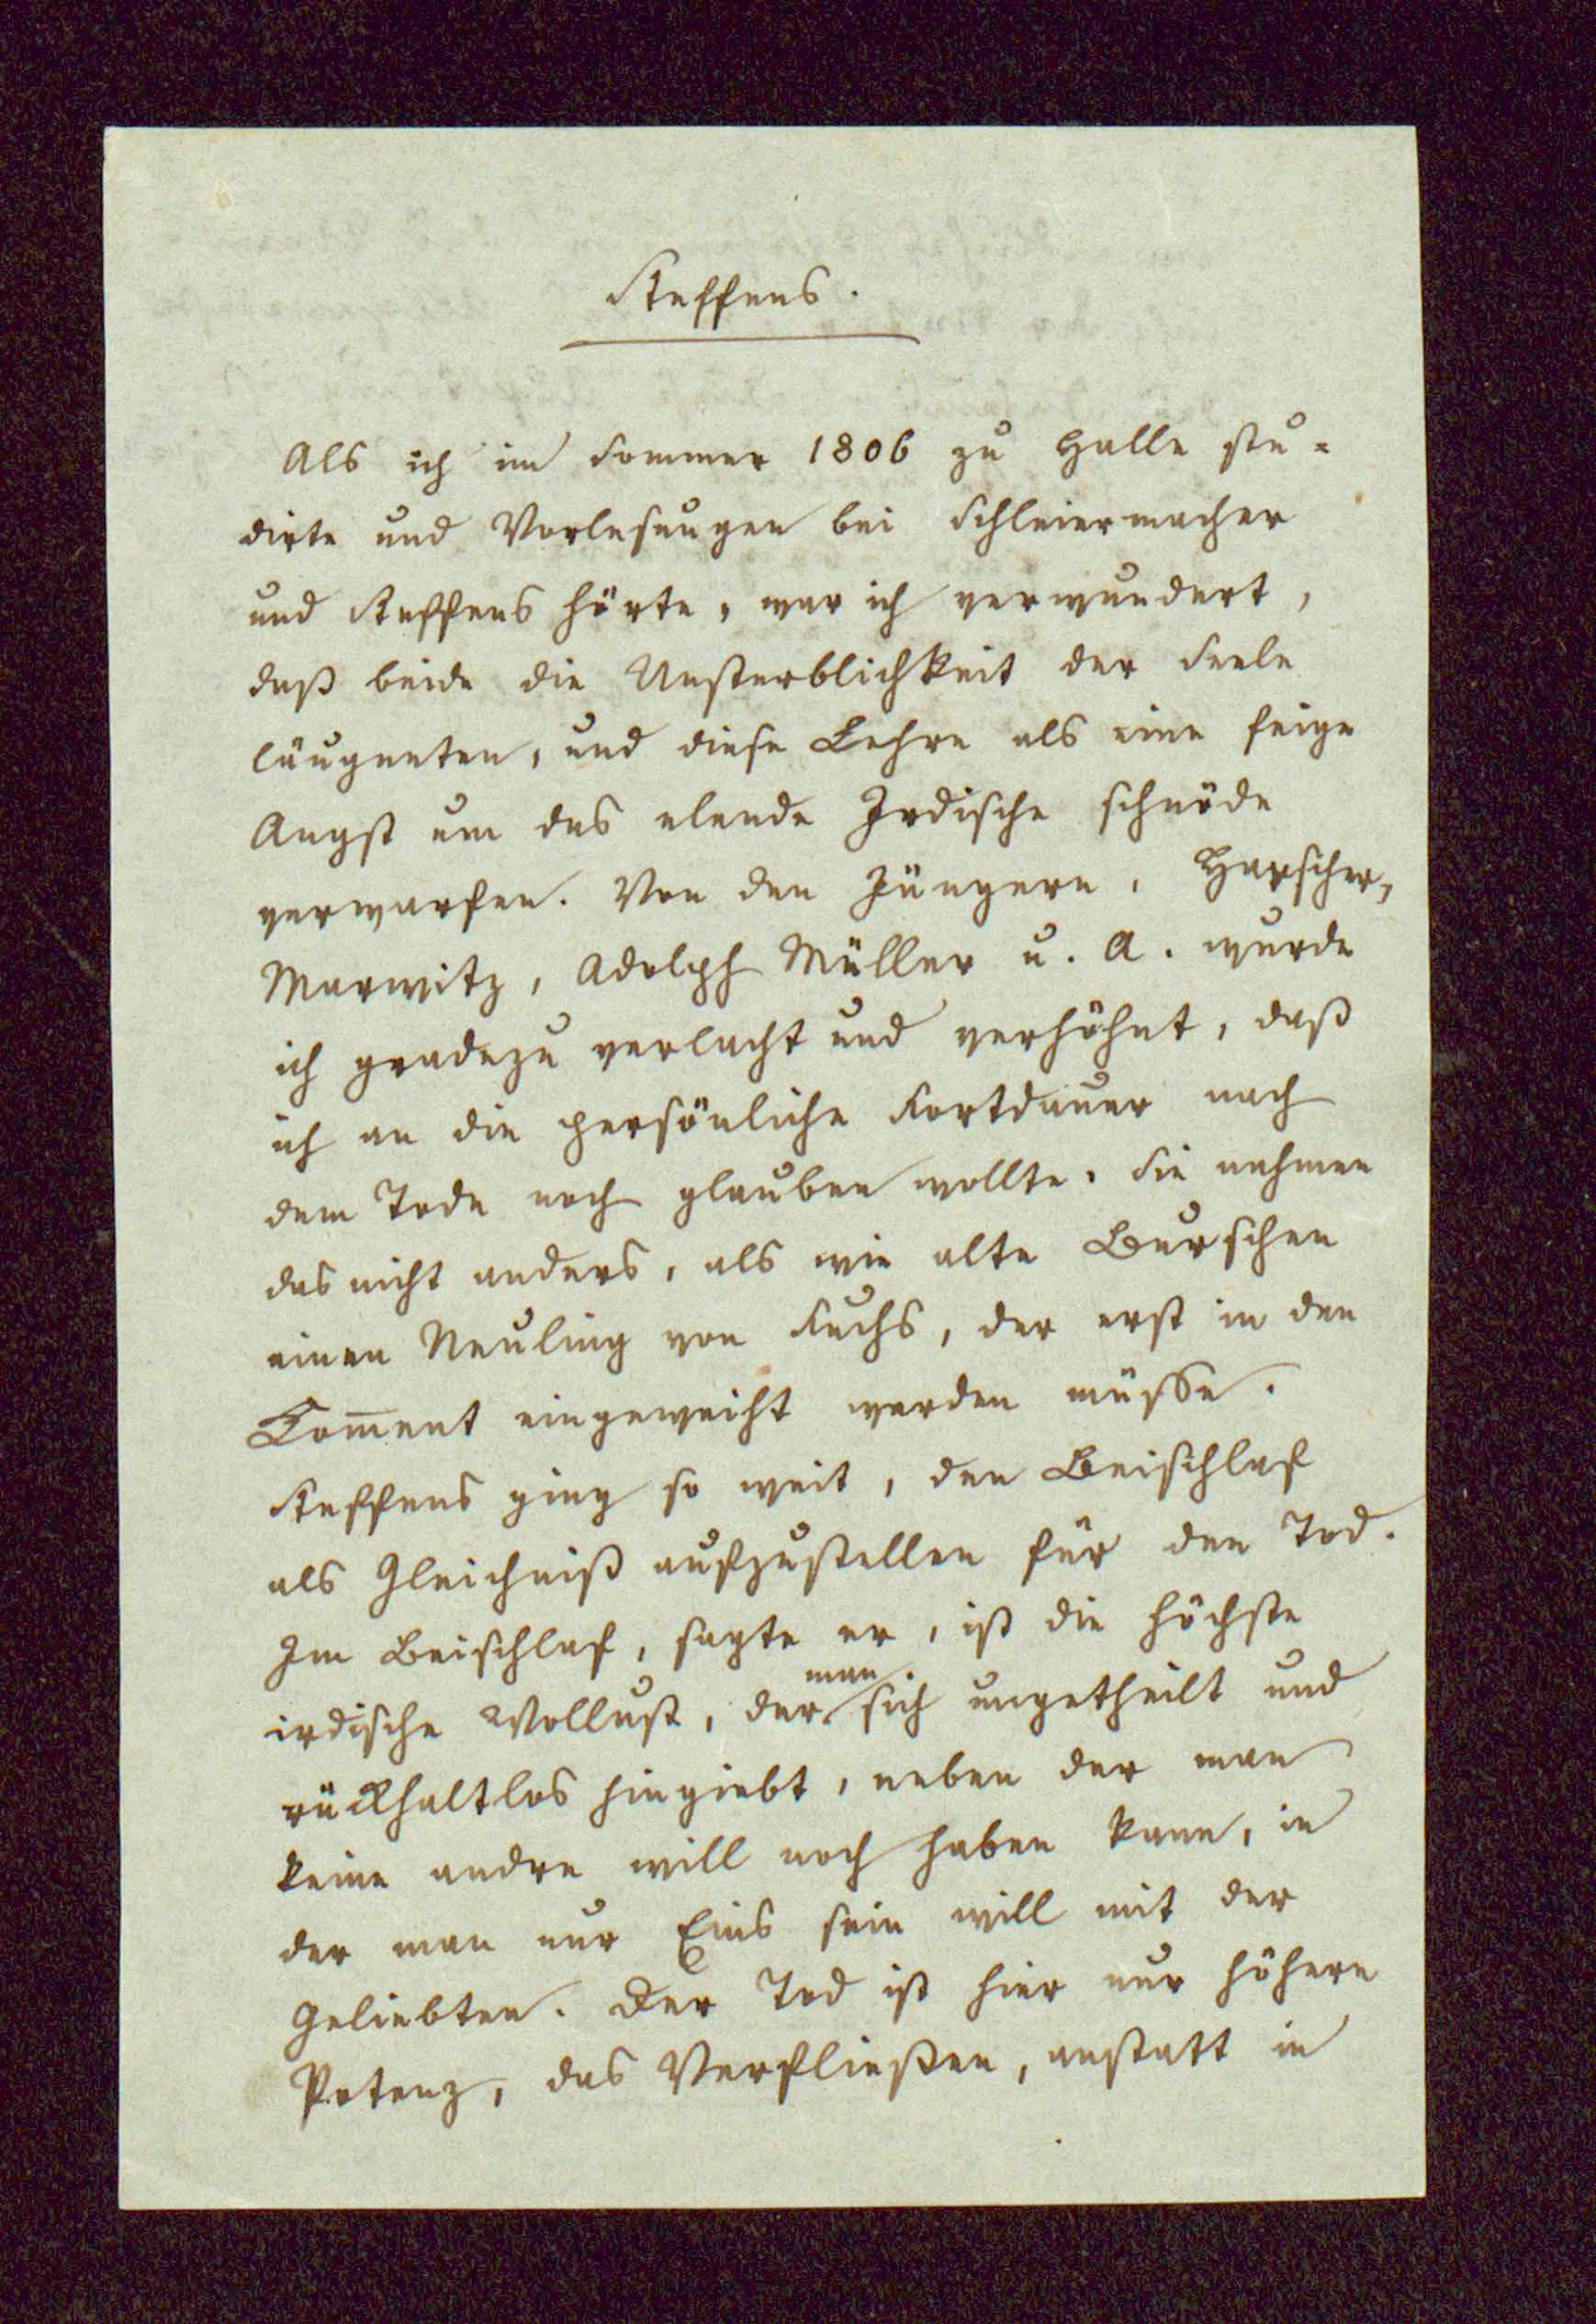 Steffens.
Als ich im Sommer 1806 zu Halle stu-
dirte und Vorlesungen bei Schleiermacher
und Steffens hörte, war ich verwundert,
daß beide die Unsterblichkeit der Seele
läugneten, und diese Lehre als eine feige
Angst um das elende Irdische schnöde
verwarfen. Von den Jüngern, Harscher,
Marwitz, Adolph Müller u. A. wurde
ich gradezu verlacht und verhöhnt, daß
ich an die persönliche Fortdauer nach
dem Tode noch glauben wollte. Sie nahmen
das nicht anders, als wie alte Burschen
einen Neuling von Fuchs, der erst in den
Com̅ent eingeweiht werden müsse.
Steffens ging so weit, den Beischlaf
als Gleichniß aufzustellen für den Tod.
Im Beischlaf, sagte er, ist die höchste
irdische Wollust, der man sich ungetheilt und
rückhaltlos hingiebt, neben der man
keine andre will noch haben kann, in
der man nur Eins sein will mit der
Geliebten. Der Tod ist hier nur höhere
Potenz, das Verfließen, anstatt in